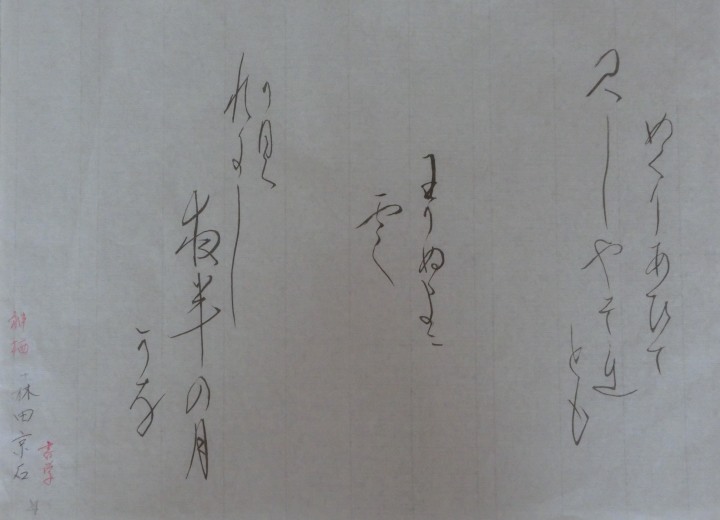 めくりあひて
見しやそれ
とも
わかぬまに
雲
かく
れにし
夜半の月
かな
神栖
森田京石